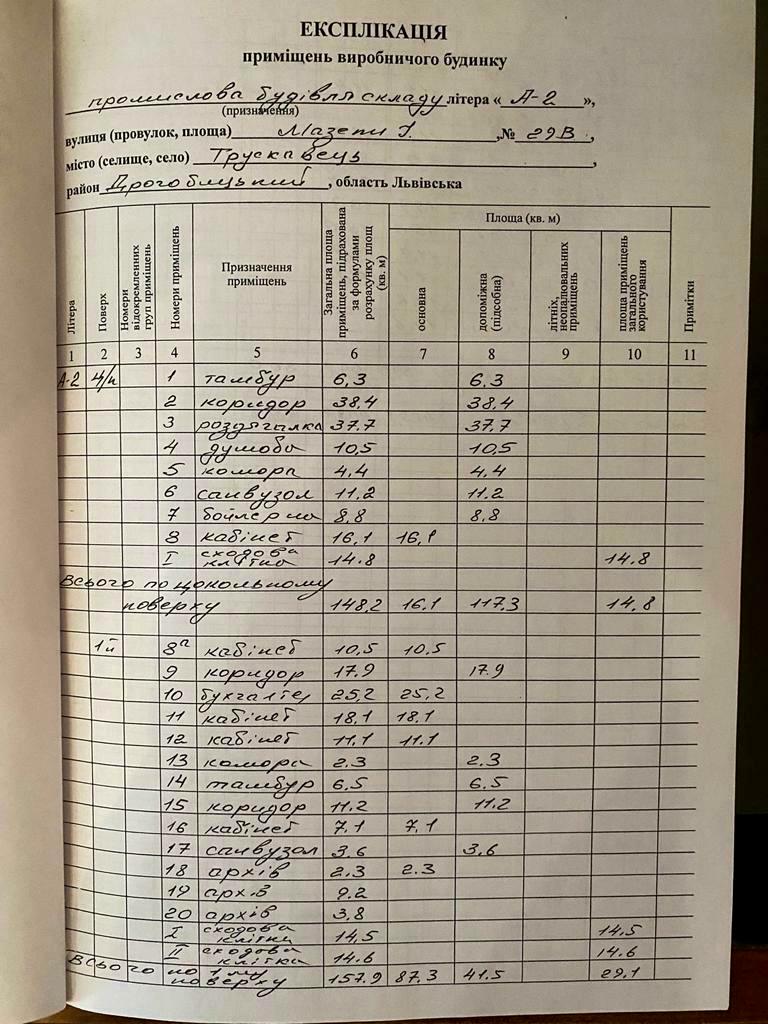 ЕКСПЛІКАЦІЯ
приміщень виробничого будинку
промислова будівля складу літера « А-2 »,
(призначення)
вулиця (провулок, площа) Мазепи І. ,№ 29В ,
місто (селище, село) Трускавець ,
район Дрогобицький , область Львівська
Літера Поверх Номери відокремленних груп приміщень Номери приміщень Призначення приміщень Загальна площа приміщень, підрахована за формулами розрахунку площ (кв. м) Площа (кв. м) Примітки
основна допоміжна (підсобна) літніх, неопалювальних приміщень площа приміщень загального користування
1 2 3 4 5 6 7 8 9 10 11
А-2 ц/п 1 тамбур 6,3 6.3
2 коридор 38.4 38.4
3 роздягалка 37.7 37,7
4 душова 10,5 10,5
5 комора 4.4 4.4
6 санвузол 11.2 11.2
7 бойлерна 8,8 8,8
8 кабінет 16,1 16,1
I сходова клітка 14.8 14.8
Всього по цокольному
поверху 148,2 16.1 117.3 14,8
1й 8а кабінет 10,5 10,5
9 коридор 17.9 17.9
10 бухгалтер 25,2 25,2
11 кабінет 18,1 18,1
12 кабінет 11,1 11.1
13 комора 2.3 2.3
14 тамбур 6.5 6.5
15 коридор 11.2 11.2
16 кабінет 7.1 7,1
17 санвузол 3,6 3,6
18 архів 2.3 2.3
19 архів 9.2
20 архів 3,8
I сходова клітка 14,5 14.5
II сходова клітка 14.6 14.6
Всього по 1му поверху 157.9 87.3 41.5 29.1